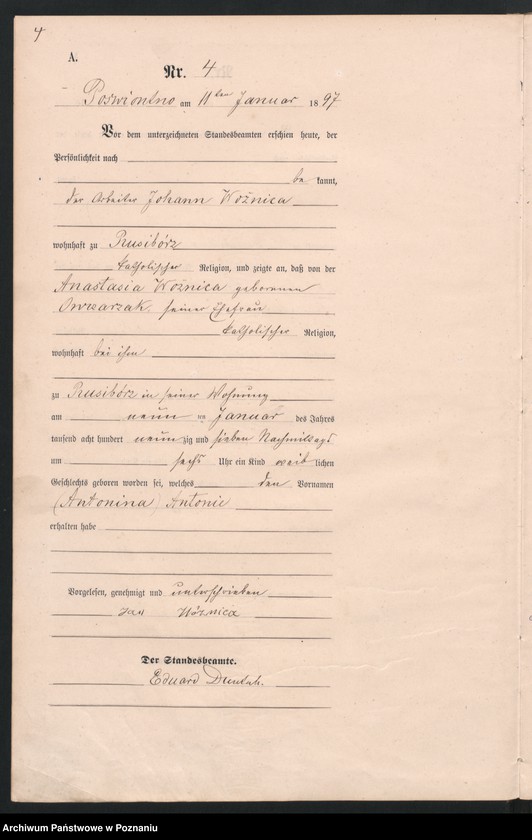 4
A.
Nr. 4
Poswiontno am 11ten Januar 1897
Vor dem unterzeichneten Standesbeamten erschien heute, der
Persönlichkeit nach
be kannt,
der Arbeiter Johann Woźnica
wohnhaft zu Rusibórz
katholischer Religion, und zeigte an, daß von der
Anastasia Woźnica geborenen
Owczarzak, seiner Ehefrau
katholischer Religion,
wohnhaft bei ihm
zu Rusibórz in seiner Wohnung
am neun ten Januar des Jahres
tausend acht hundert neun zig und sieben Nachmittags
um sechs Uhr ein Kind weib lichen
Geschlechts geboren worden sei, welches den Vornamen
(Antonina) Antonie
erhalten habe
Vorgelesen, genehmigt und unterschrieben
Jan Woznica
Der Standesbeamte.
Eduard
Archiwum Państwowe w Poznaniu